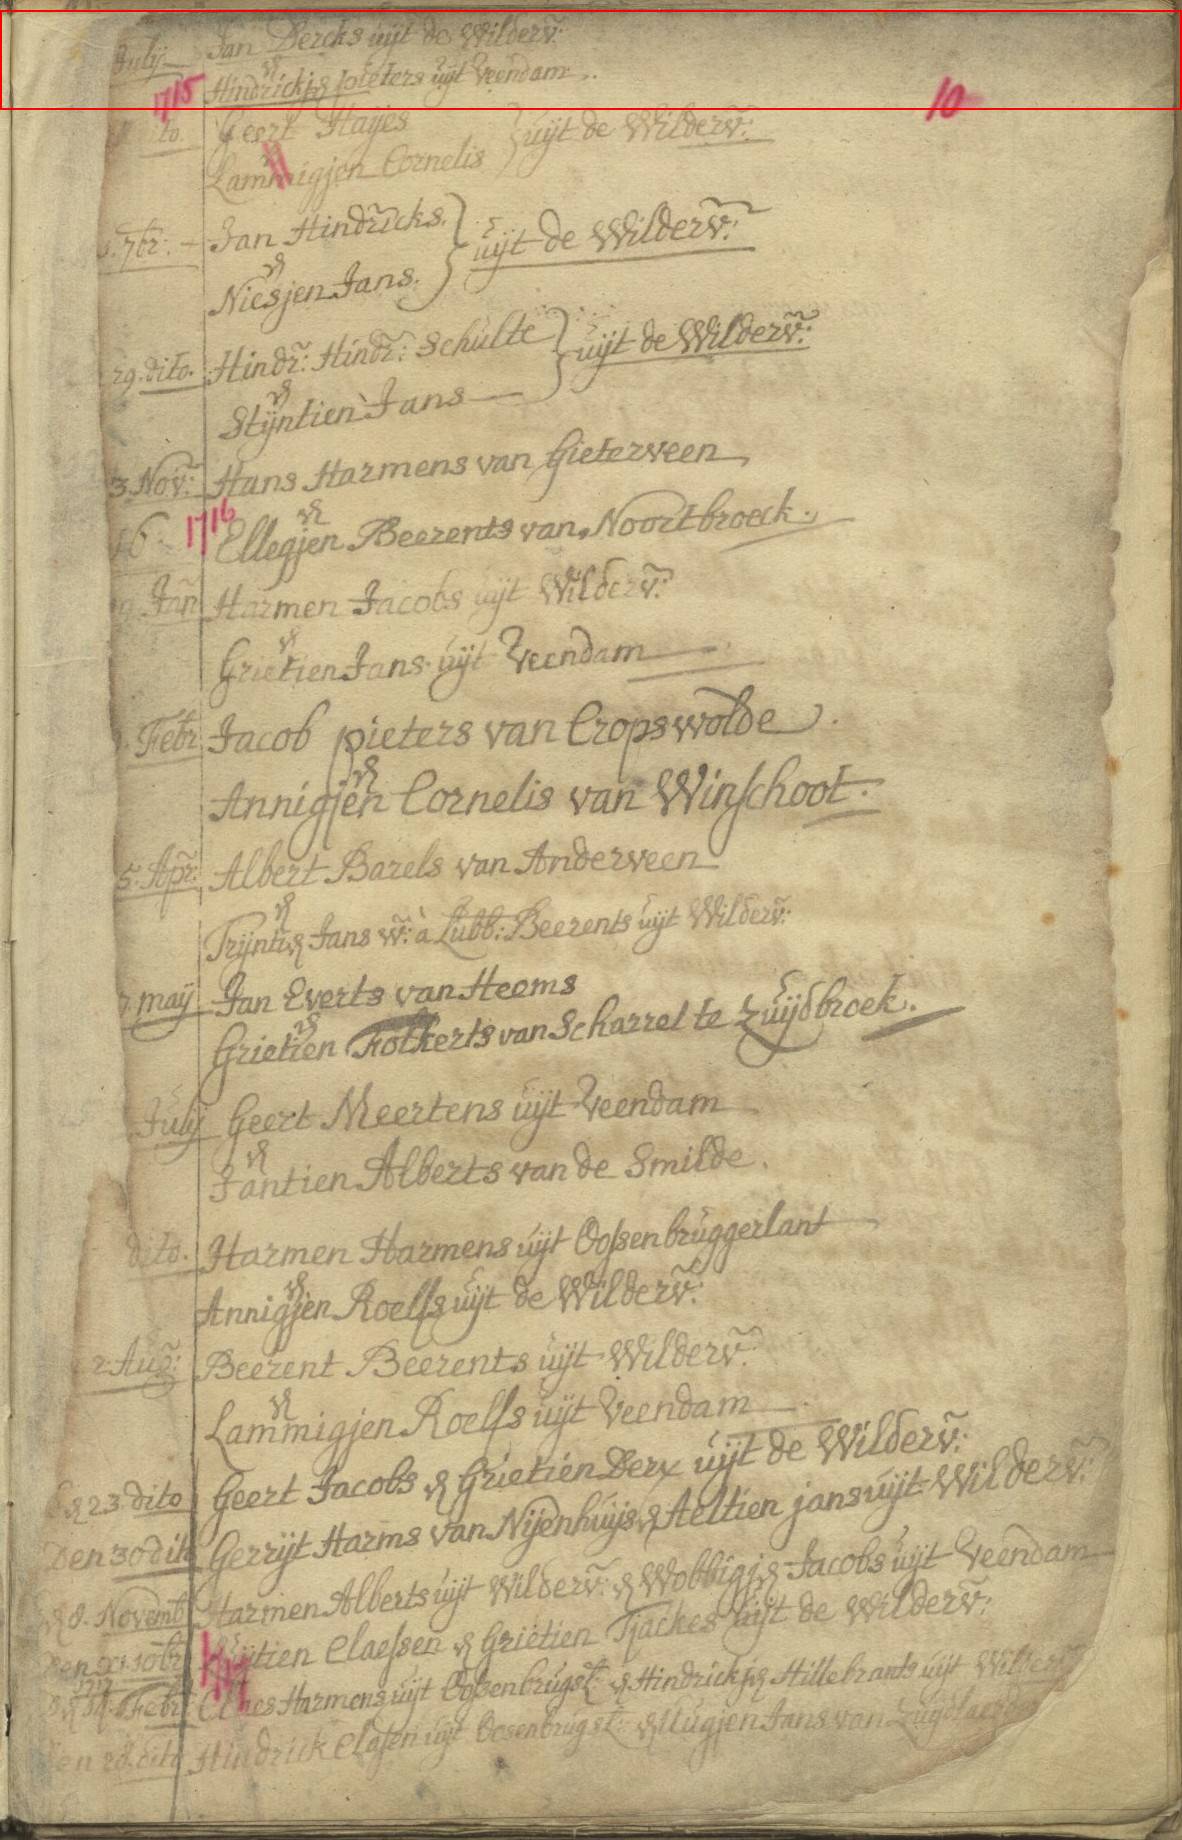 July Jan Dercks uijt de Wilderv:
en
Hindrickjen pieters uijt Veendam
1715 10
dito. Geert Hayes } uijt de Wilderv:
Lammigjen Cornelis
7br: - Jan Hindricks. } uijt de Wilderv:
en
Niesjen Jans.
29. dito. Hindr: Hindr: Schulte } uijt de Wilderv:
en
Stijntien Jans
3. Nov: Hans Harmens van Gieterveen
en
16 1716 Ellegjen Beerents van Noortbroeck.
Jan Harmen Jacobs uijt Wilderv:
en
Grietien Jans uijt Veendam
Febr Jacob pieters van Cropswolde
en
Annigjen Cornelis van Winschoot.
5. Apr: Albert Barels van Anderveen
en
Trijntien Jans w: à Lubb: Beerents uijt Wilderv:
7. maij Jan Everts van Heems
en
Grietien Folkerts van Scharrel te Zuijdbroek.
Julij Geert Meertens uijt Veendam
en
Jantien Alberts van de Smilde.
dito. Harmen Harmens uijt Oossenbruggerlant
en
Annigjen Roelfs uijt de Wilderv:
2. Aug: Beerent Beerents uijt Wilderv:
en
Lammigjen Roelfs uijt Veendam
den 23. dito Geert Jacobs en Grietien Derx uijt de Wilderv:
Den 30 dito Gerrijt Harms van Nijenhuijs en Aeltien jans uijt Wilderv:
den 8. Novemb Harmen Alberts uijt Wilderv: en Wobbigjen Jacobs uijt Veendam
den 10br Claessen en Grietien Tjackes uijt de Wilderv:
1717
den Febr: Claes Harmens uijt Oossenbrugsl: en Hindrickjen Hillebrants uijt Wilderv
den 28. dito Hindrick Clasen uijt Oosenbrugsl: en Jans van